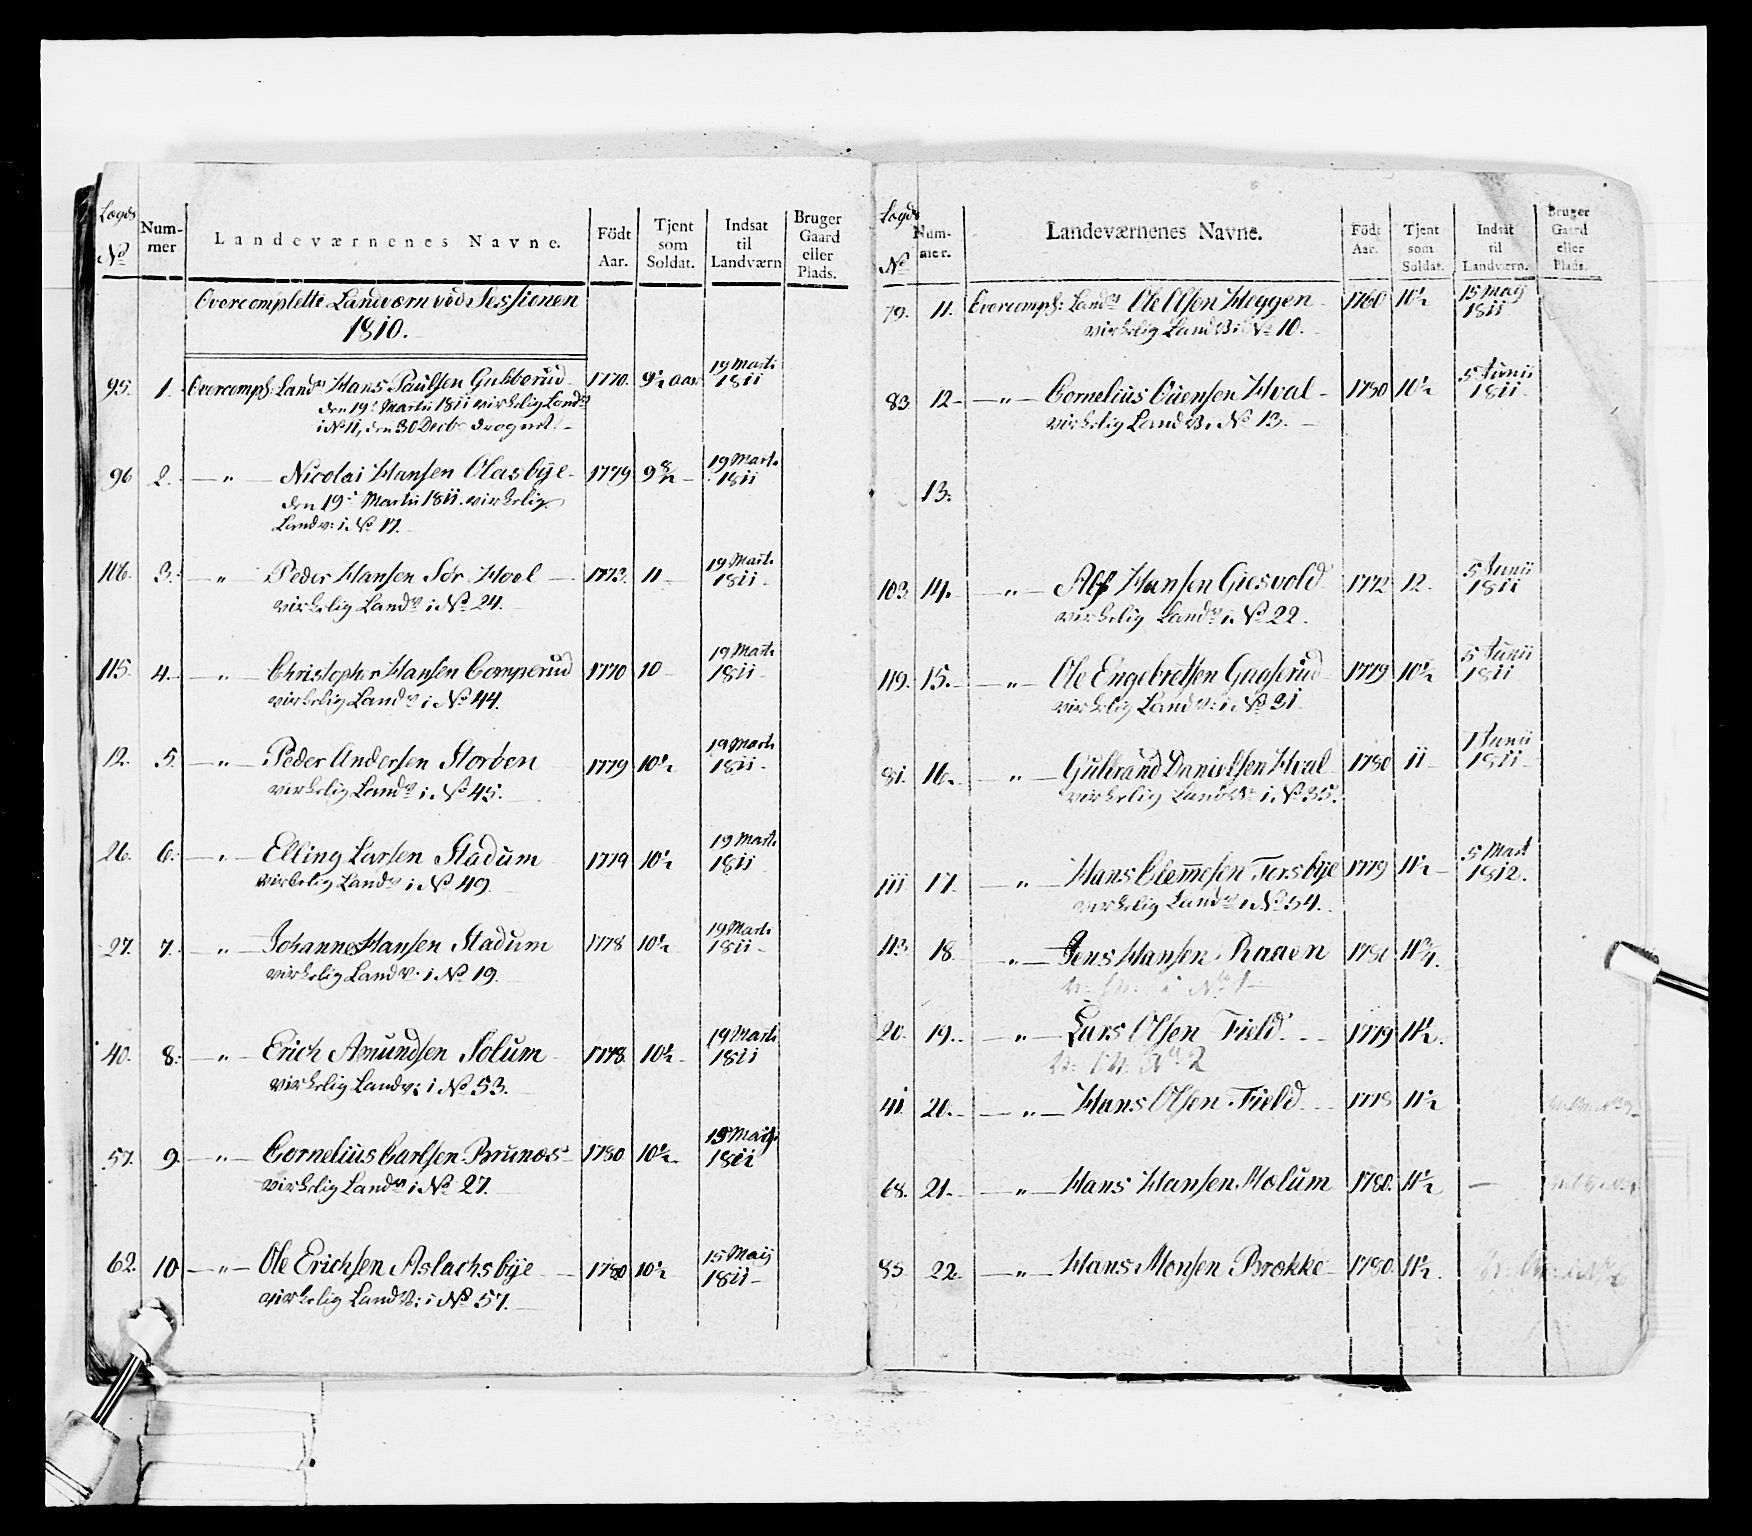 Lægds Num- Landeværnenes Navne. Födt Tjent Indsat Bruger
No mer Aar. som til Gaard
Soldat. Landværn eller
Plads.
Overcomplette Landværn ved Sessionen
1810.
95. 1. Overcompl: Landv Hans Paulsen Gubberud 1770. 9½ aar 19 Marti 1811
den 19de Martii 1811 virkelig Landv
i No 11, den 30 Decbr
96 2. — " — Nicolai Hansen Olasbÿe 1779 9 8/12 19 Marti 1811
den 19de Martii 1811. virkelig
Landv: i No 17.
106. 3. — " — Peder Hansen Sör Hoel 1773. 11 19 Marti 1811
virkelig Landv i No 24.
115. 4. — " — Christopher Hansen Comperud 1770 10 19 Marti 1811
virkelig Landv i No 44.
12. 5. — " — Peder Andersen Storben 1779 10½ 19 Marti 1811
virkelig Landv i No 45.
26. 6. — " — Elling Larsen Stadum 1779 10½ 19 Marti 1811
virkelig Landv i No 49.
27. 7. — " — Johannes Hansen Stadum 1778 10½ 19 Marti 1811
virkelig Landv. i No 19.
40. 8. — " — Erich Amundsen Solum 1778. 10½ 19 Marti 1811
virkelig Landv: i No 53.
57. 9. — " — Cornelius Carlsen Brunæs 1780 10½ 15 Maij 1811
virkelig Landv i No 27.
62. 10 — " — Ole Erichsen Aslachsbÿe 1780 10½ 15 Maij 1811
virkelig Landv: i No 57.
Lægds Num- Landeværnenes Navne. Födt Tjent Indsat Bruger
No mer. Aar. som til Gaard
Soldat. Landværn. eller
Plads.
79. 11. Overcompl: Landv Ole Olsen Heggen 1760 10½ 15 Maij 1811
virkelig Landv: i No 10.
83. 12 — " — Cornelius Evensen Hval 1780 10½ 5 Junii 1811
virkelig Landv. i No 13.
13.
103 14. — " — Alf Hansen Giesvold 1772 12. 5 Junii 1811
virkelig Landv i No 22.
119. 15. — " — Ole Engebretsen Gagserud 1779 10½ 5 Junii 1811
virkelig Landv: i No 31
81. 16. — " — Gulbrand Danielsen Hval 1780 11 1 Junii 1811
virkelig Landv: i No 35.
111 17. — " — Hans Clemmesen Torsbÿe 1779 11½ 5 Mart 1812.
virkelig Landv i No 54.
113. 18. — " — Jens Hansen Raaen 1781 11¾.
i No 1
20. 19. — " — Lars Olsen Field 1779 11½.
No 2
41. 20. — " — Hans Olsen Field 1778 11½
68. 21. — " — Hans Hansen Molum 1780. 11½ —
85 22. — " — Hans Monsen Brokke 1780 11½.